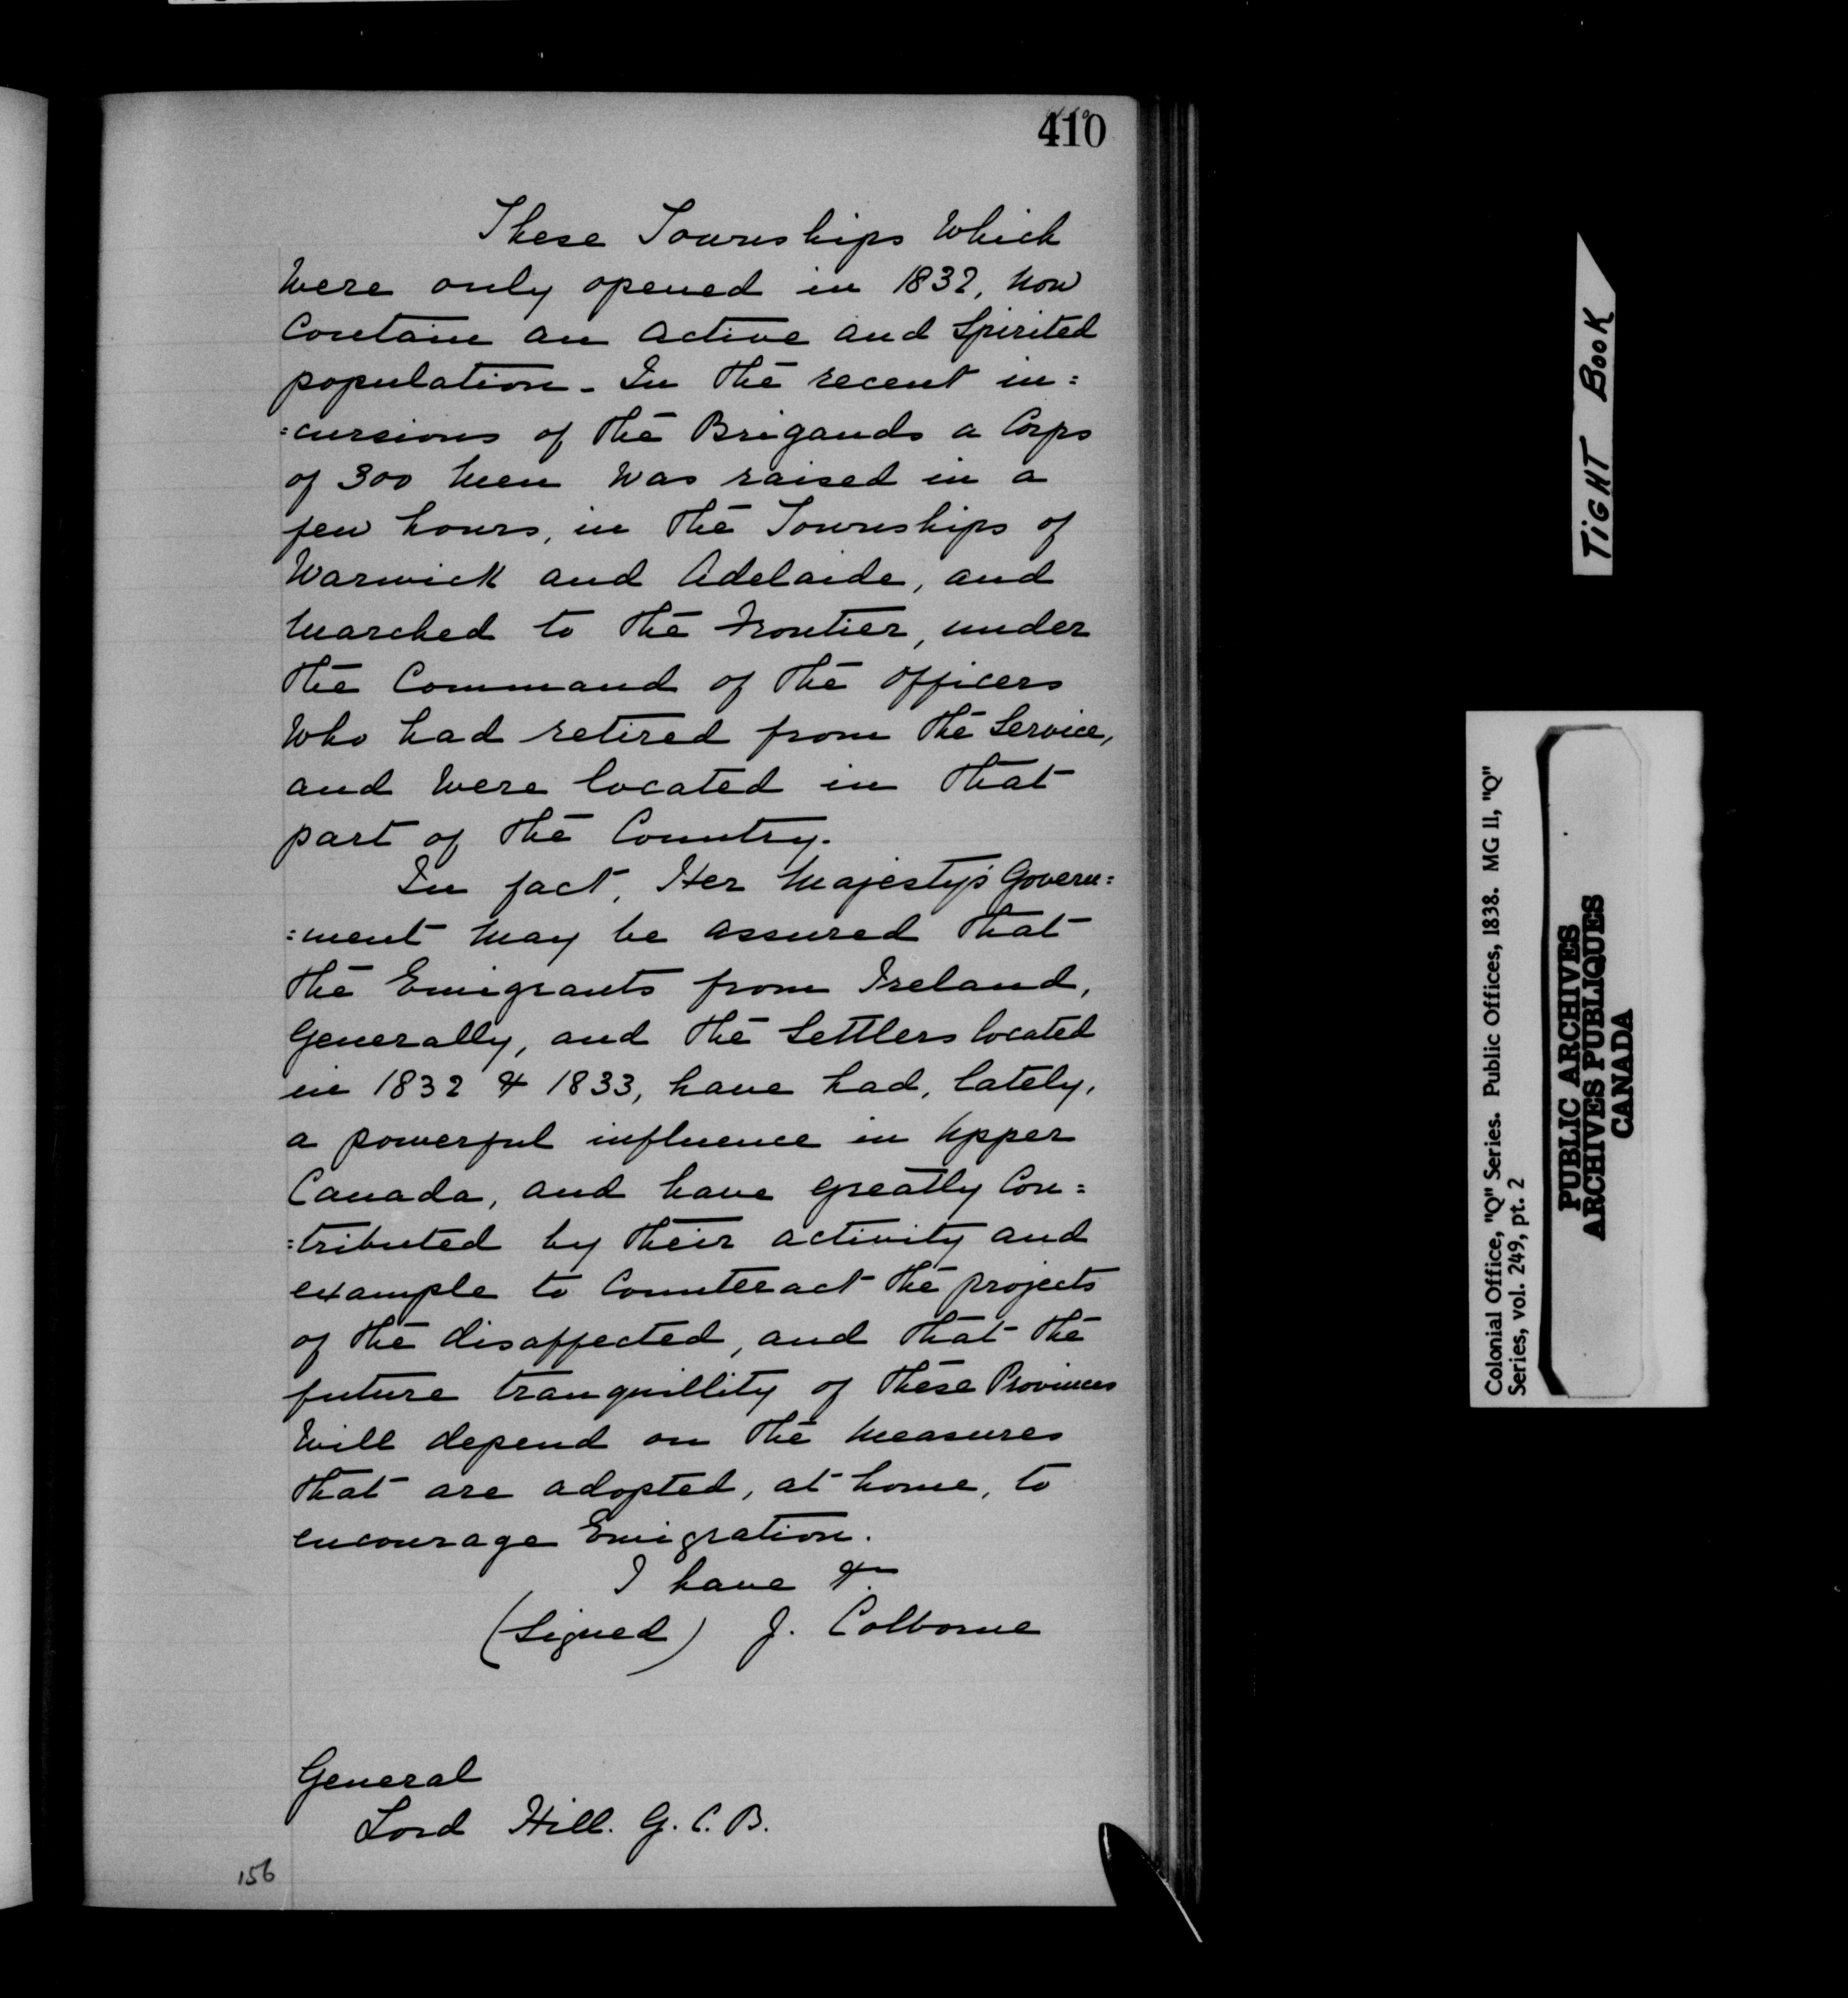 410
These Townships Which
Were only opened in 1832, now
Contain an active and Spirited
population - In the recent in=
=cursions of the Brigands a Corps
of 300 Men Was raised in a
few hours, in the Townships of
Warwick and Adelaide, and
Marched to the Frontier, under
the Command of the Officers
Who had retired from the Service,
and Were located in that
part of the Country.
In fact, Her Majesty's Govern=
=ment May be assured that
the Emigrants from Ireland,
Generally, and the Settlers located
in 1832 & 1833, have had, lately,
a powerful influence in Upper
Canada, and have greatly Con=
=tributed by their activity and
example to Counteract the projects
of the disaffected, and that the
future tranquillity of these Provinces
Will depend on the Measures
that are adopted, at home, to
encourage Emigration.
I have &c
(Signed) J. Colborne
General
Lord Hill. G. C. B.
156
TIGHT BOOK
Colonial Office, "Q" Series. Public Offices, 1838. MG 11, "Q"
Series, vol. 249, pt. 2
PUBLIC ARCHIVES
ARCHIVES PUBLIQUES
CANADA